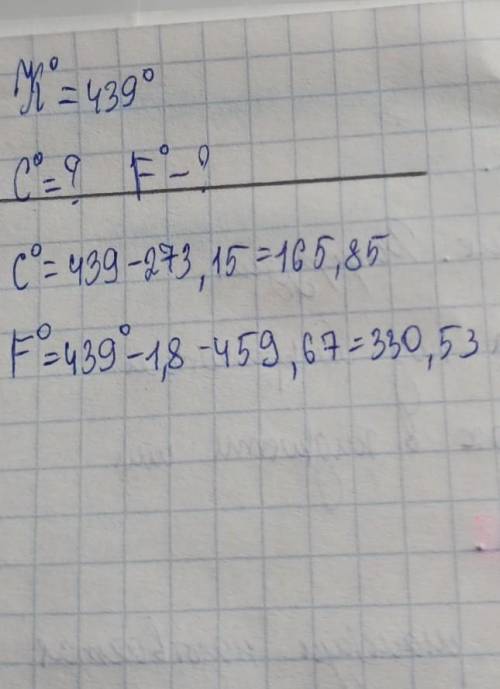 K° = 439°
C° = ? F° - ?
C° = 439 - 273,15 = 165,85
F° = 439° - 1,8 - 459,67 = 330,53